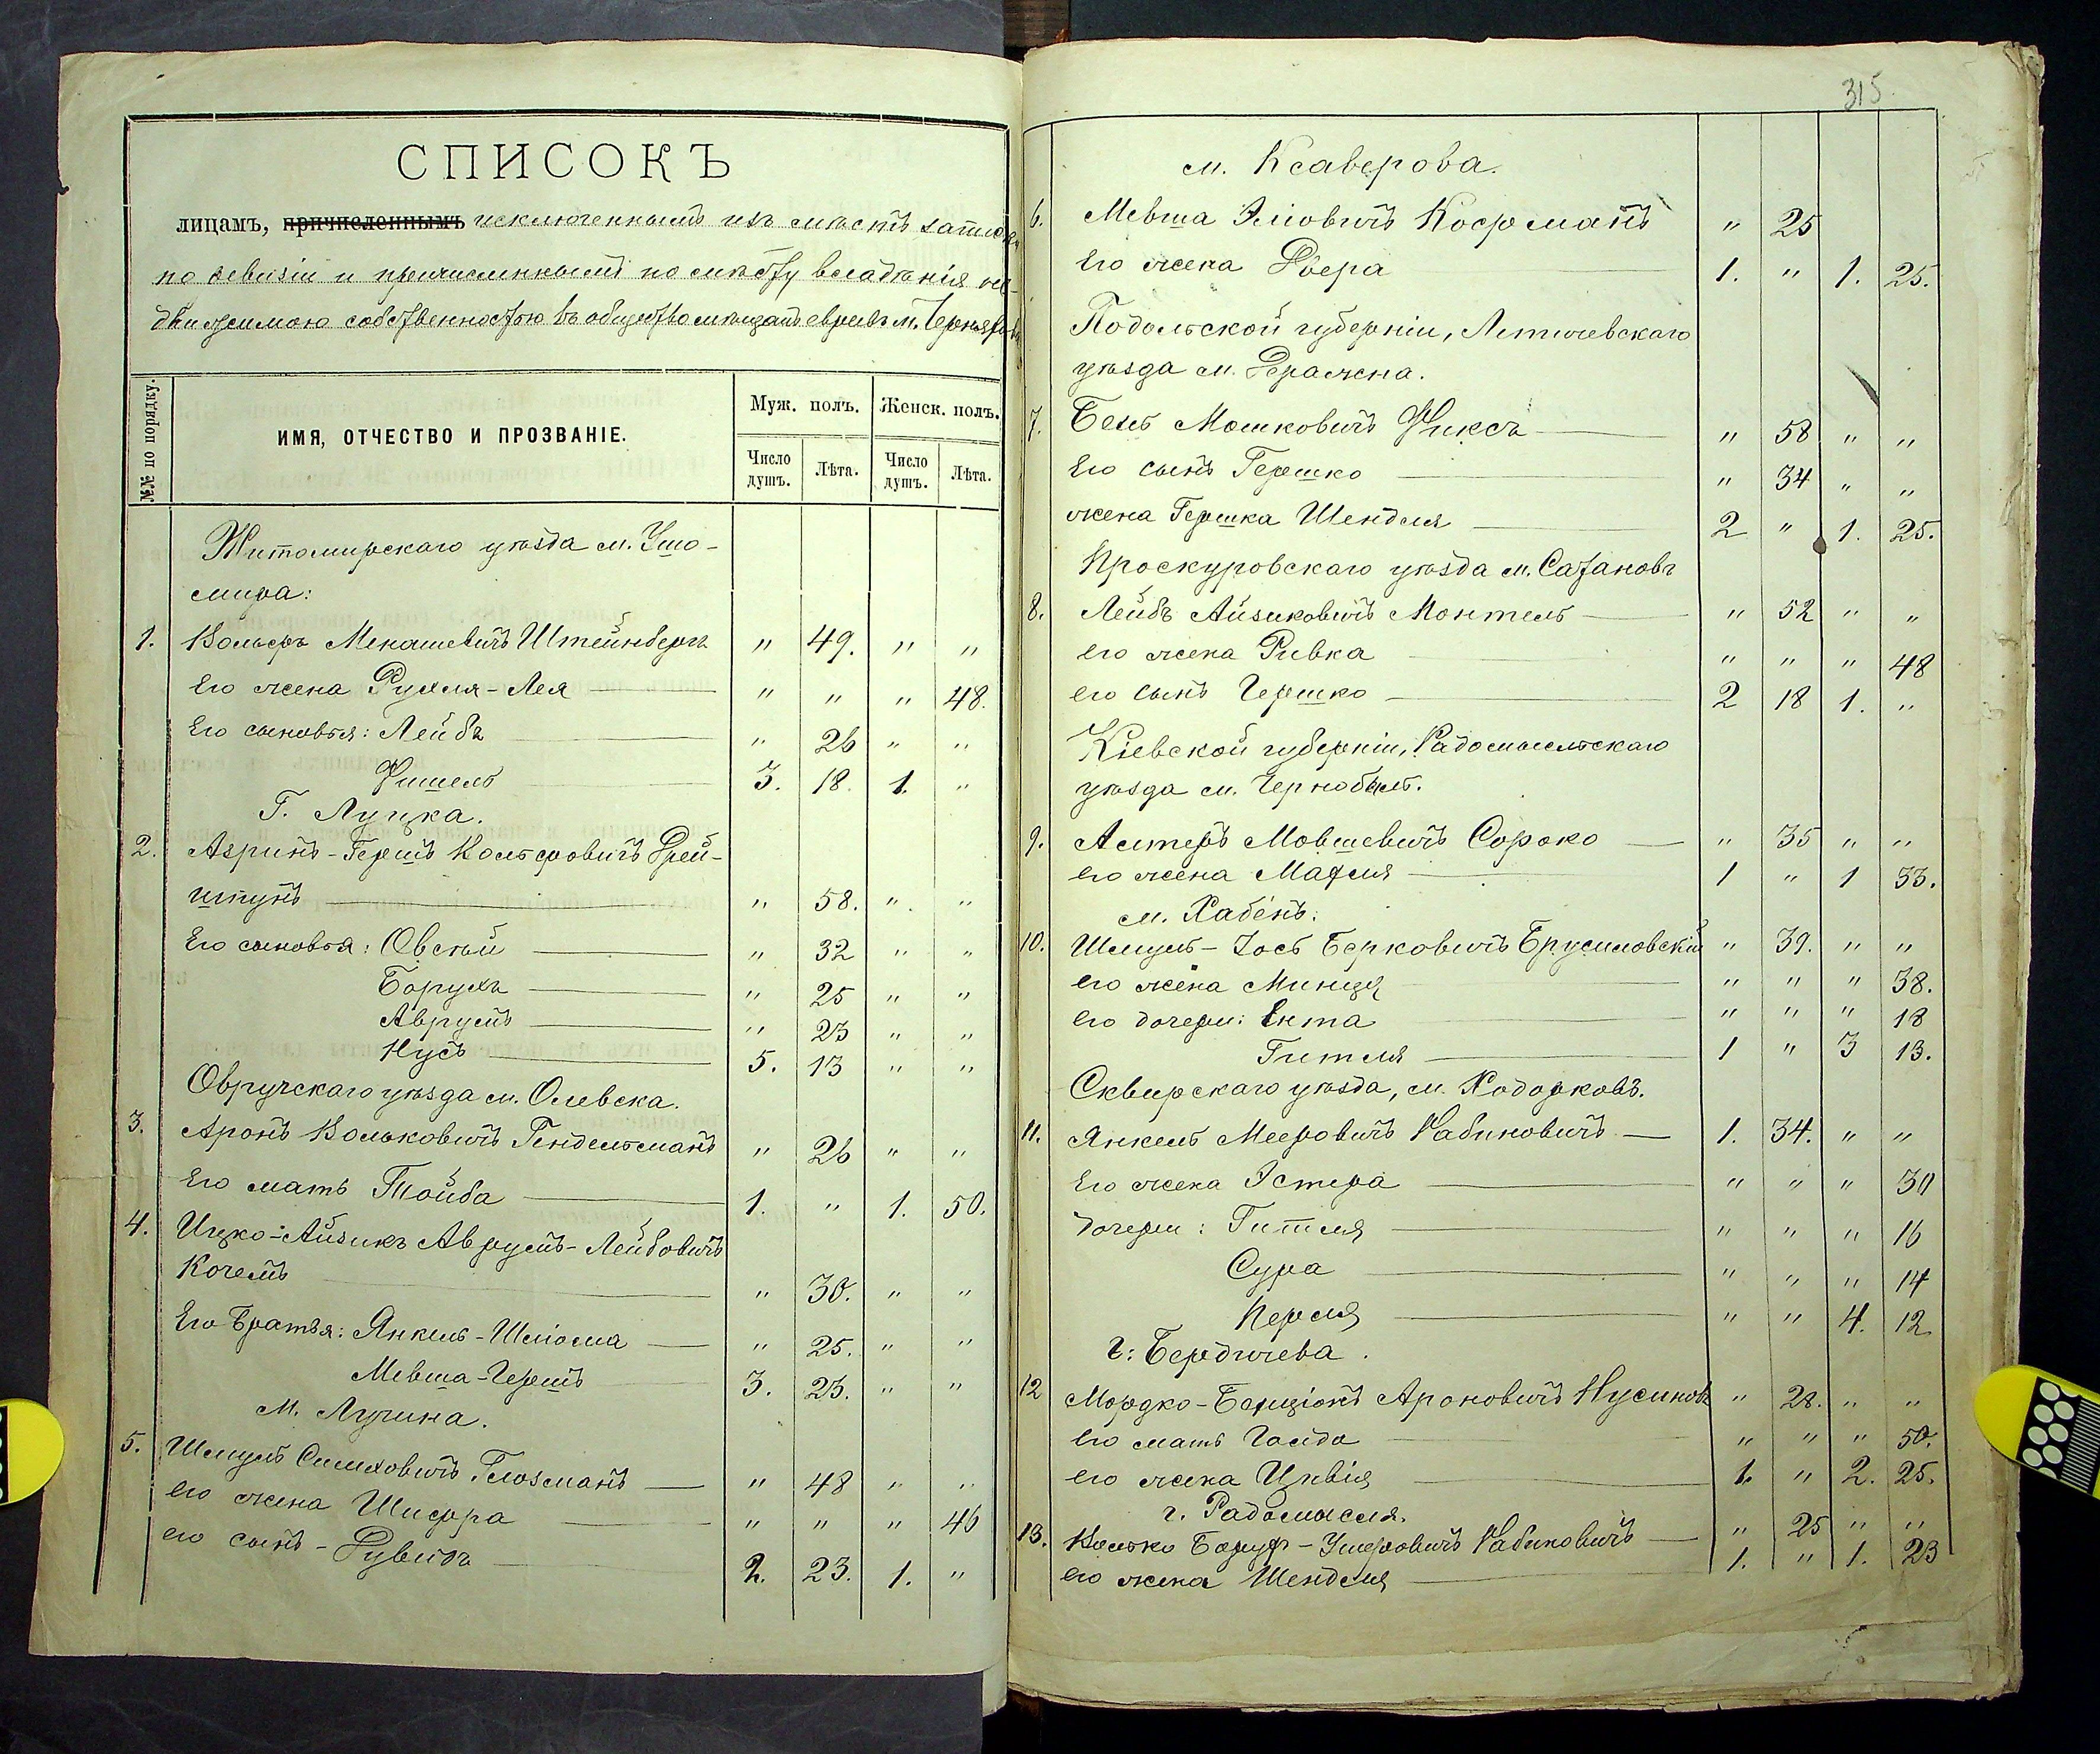 СПИСОКЪ
лицамъ, причисленнымъ исключеннымъ изъ мѣстъ записки
по ревизіи и причисленнымъ по мѣсту владѣнія не-
движимою собственностью въ общество мѣщанъ евреевъ м.
№№ по порядку.
ИМЯ, ОТЧЕСТВО И ПРОЗВАНІЕ.
Муж. полъ. Женск. полъ.
Число душъ. Лѣта. Число душъ. Лѣта.
Житомирскаго уѣзда м. Ушо-
мира:
1. Вольфъ Менашевичъ Штейнбергъ " 49. " "
Его жена Рухля-Лея " " " 48.
Его сыновья: Лейбъ " 26 " "
Фишель 3. 18. 1. "
Г. Луцка.
2. Азринъ-Гершъ Вольфовичъ Дрей-
шпунъ " 58. " "
Его сыновья: Овсѣй " 32 " "
Борухъ " 25 " "
Аврумъ " 23 " "
Нусъ 5. 13 " "
Овручскаго уѣзда м. Олевска.
3. Аронъ Вольковичъ Гендельманъ " 26 " "
Его мать Тойба 1. " 1. 50.
4. Ицко-Айзикъ Аврумъ-Лейбовичъ
Кочемъ " 30. " "
Его братья: Янкель-Шліома " 25. " "
Мевша-Гершъ 3. 23. " "
М. Лугина.
5. Шмуль Симховичъ Глозманъ " 48 " "
его жена Шифра " " " 46
его сынъ - Рувинъ 2. 23. 1. "
315.
м. Ксаверова.
6. Мевша Эліовичъ Кофманъ " 25
Его жена Двера 1. " 1. 25.
Подольской губерніи, Летичевскаго
уѣзда м. Деражна.
7. Бень Мошковичъ Фиксъ " 58 " "
Его сынъ Гершко " 34 " "
жена Гершка Шендля 2 " 1. 25.
Проскуровскаго уѣзда м. Сатановъ
8. Лейбъ Айзиковичъ Монтель " 52 " "
его жена Ривка " " " 48
его сынъ Гершко 2 18 1. "
Кіевской губерніи, Радомысльскаго
уѣзда м. Чернобыль.
9. Альтеръ Мовшевичъ Сороко " 35 " "
его жена Матля 1 " 1 33.
м. Хабенъ.
10. Шмуль-Іось Берковичъ Брусиловскій " 39. " "
его жена Минця " " " 38.
его дочери: Ента " " " 18
Гитля 1 " 3 13.
Сквирскаго уѣзда, м. Ходорковъ.
11. Янкель Мееровичъ Рабиновичъ 1. 34. " "
Его жена Эстера " " " 30
дочери: Гитля " " " 16
Сура " " " 14
Перля " " 4. 12
г: Бердичева.
12 Мордко-Бенціонъ Ароновичъ Нусиновъ " 28. " "
его мать Голда " " " 50.
его жена Цивія 1. " 2. 25.
г. Радомысля.
13. Волько Борух-Ушеровичъ Рабиновичъ " 25 " "
его жена Шендля 1. " 1. 23